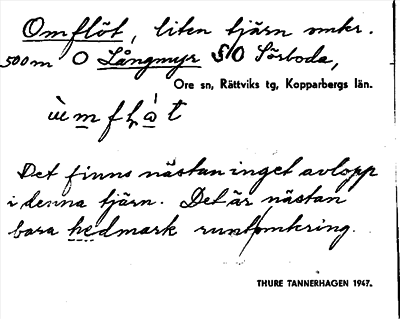 Omflöt, liten tjärn omkr.
500m O Långmyr SO Sörboda,
Ore sn, Rättviks tg, Kopparbergs län.
Det finns nästan inget avlopp
i denna tjärn. Det är nästan
bara hedmark runtomkring.
THURE TANNERHAGEN 1947.